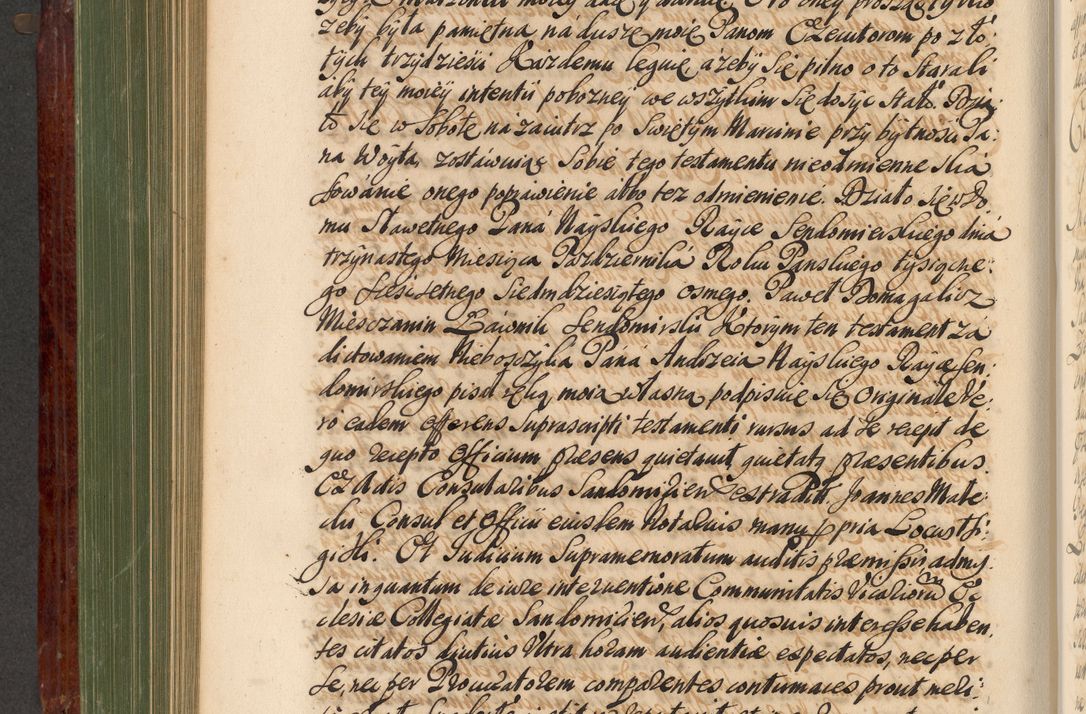 żeby była pamiętna na duszę moię Panom Executorom po zło:
tych trzydzieści Kazdemu leguię a żeby się pilno o to starali
aby tey moiey intentii pobozney we wszytkim się dosyc stało. Dzia:
ło się w Sobotę na zaiutrz po Swiętym Marcinie przy bytnosci Pa:
na Woyta, zostawuiąc sobie tego testamentu nieodmienne ska
sowanie onego poprawienie albo tez odmienienie. Działo się w Do:
mu sławetnego Pana Nayskiego Rayce Sendomierskiego dnia
trzynastego Miesiąca Pazdziernika Roku Panskiego tysiączne:
go szescsetnego siedmdziesiątego osmego. Paweł Domagalicz
Miesczanin Ławnik Sendomirski Ktorym ten testament za
dictowaniem Nieboszczyka Pana Andrzeia Nayskiego Rayce Sen:
domirskiego pisał ręką moią własną podpisuię się Originale Ve:
ro eadem offerens suprascripti testamenti rursus ad se recepit de
quo recepto Officium praesens quietauit quietatq praesentibus.
Ex Actis Consularibus Sandomirien extradit Joannes Male:
cki Consul et Officii eiusdem Notarius manu ppria Locus Si:
gilli. Et Iudicium supramemoratum auditis praemissis admis:
sa inquantum de iure interuentione Communitatis Vicariorum Ec
clesiae Collegiatae Sandomirien, alios quosuis interesse haben
tes citatos diutius Vltra horam audientiae expectatos, nec per
se, nec per Procuratorem comparentes contumaces prout meri: